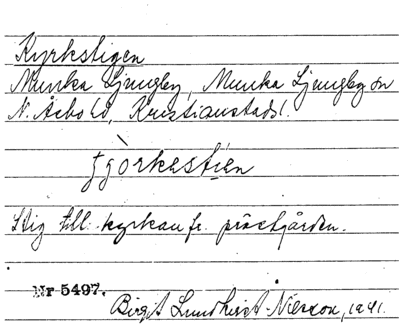 Kyrkstigen
Munka Ljungby, Munka Ljungby sn
N. Åsbo hd, Kristianstads l.
fjòrkestien
Stig till kyrkan fr. prästgården.
Nr 5497.
Birgit Lundkvist-Nilsson, 1941.